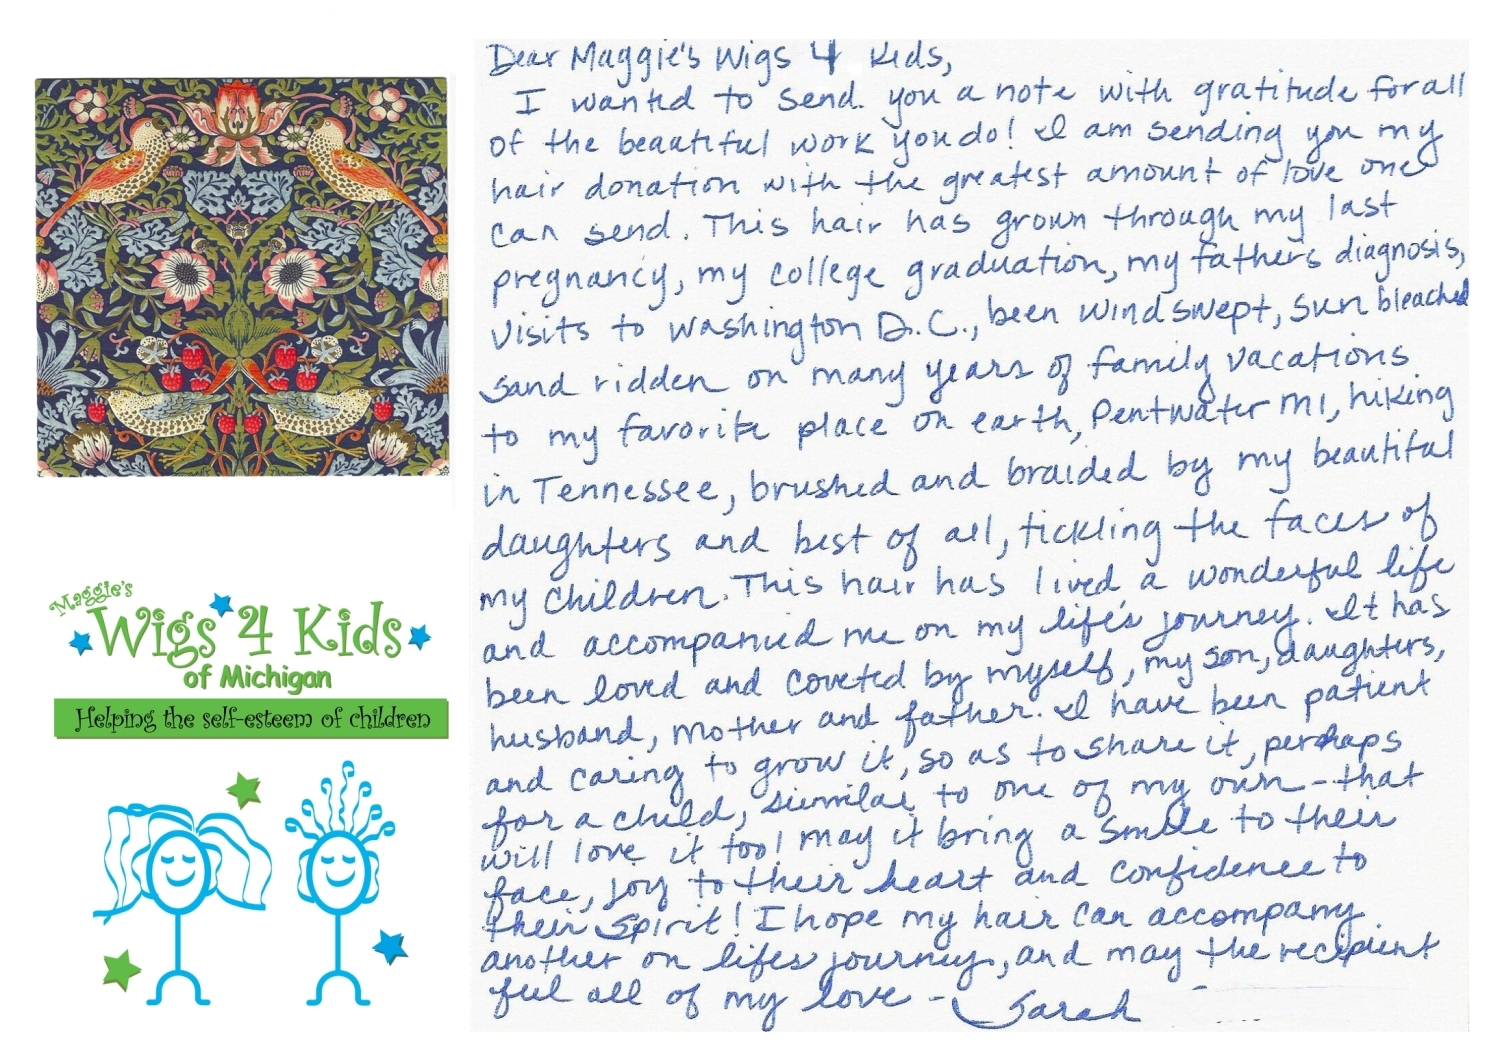 Dear Maggie's Wigs 4 Kids,
I wanted to send you a note with gratitude for all
of the beautiful work you do! I am sending you my
hair donation with the greatest amount of love one
can send. This hair has grown through my last
pregnancy, my college graduation, my father's diagnosis,
visits to Washington D.C., been windswept, sun bleached
sand ridden on many years of family vacations
to my favorite place on earth, Pentwater MI, hiking
in Tennessee, brushed and braided by my beautiful
daughters and best of all, tickling the faces of
my children. This hair has lived a wonderful life
and accompanied me on my life's journey. It has
been loved and coveted by myself, my son, daughters,
husband, mother and father. I have been patient
and caring to grow it, so as to share it, perhaps
for a child, similar to one of my own - that
will love it too! May it bring a smile to their
face, joy to their heart and confidence to
their spirit! I hope my hair can accompany
another on life's journey, and may the recipient
feel all of my love -
Sarah
Maggie's
Wigs 4 Kids
of Michigan
Helping the self-esteem of children